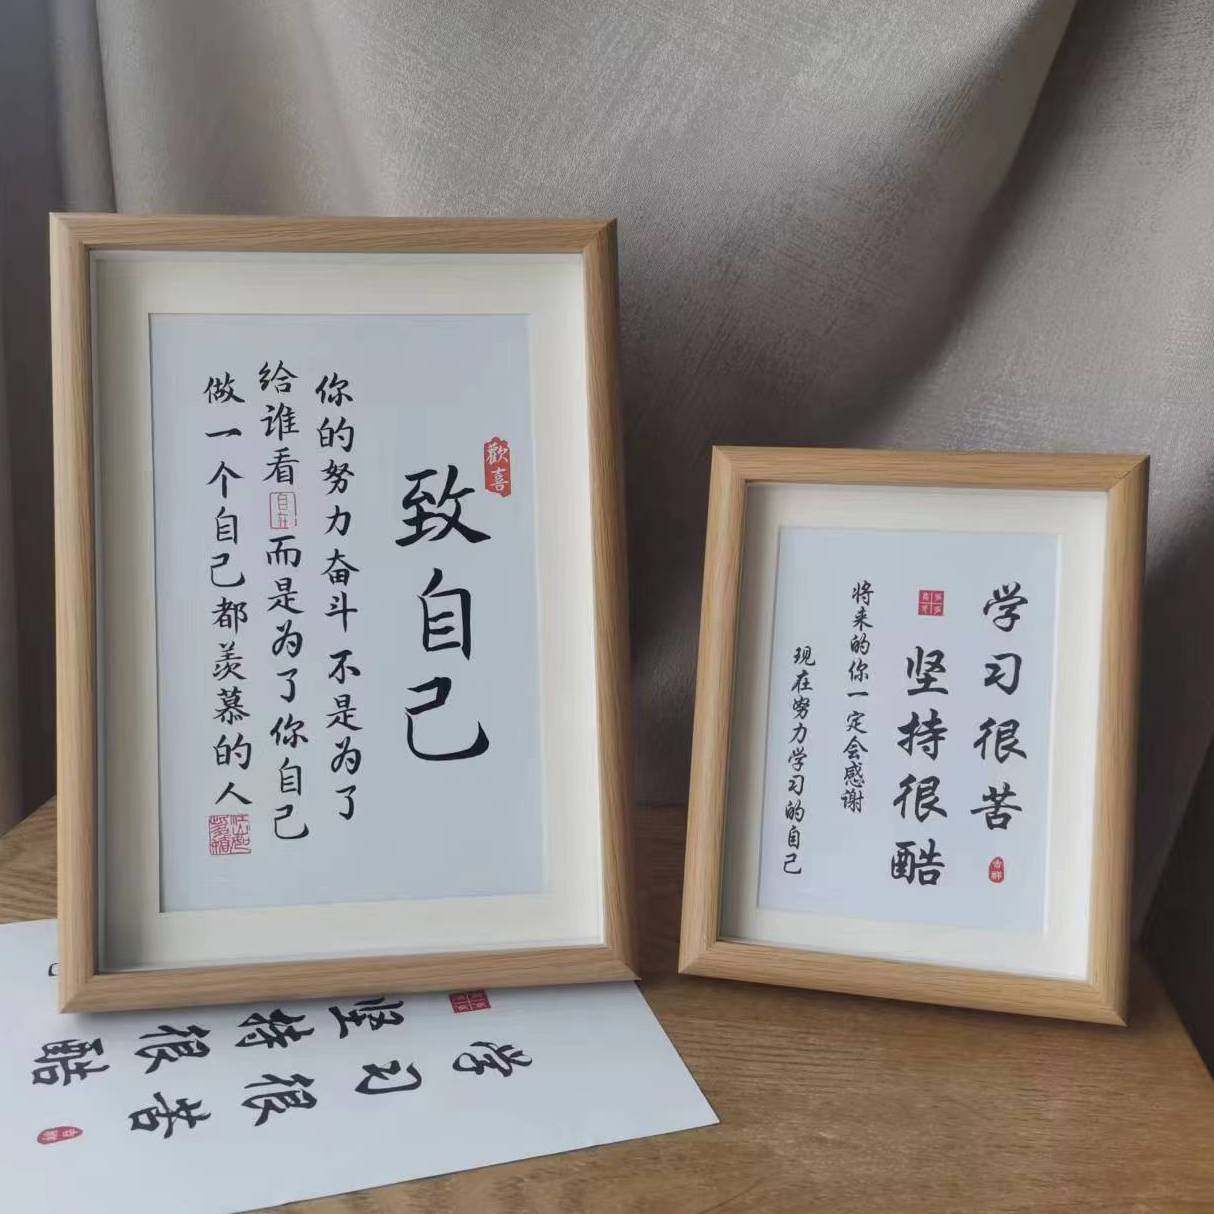 歡喜
致自己
你的努力奋斗不是为了
给谁看
自在
而是为了你自己
做一个自己都羡慕的人
学习很苦
吉祥
坚持很酷
将来的你一定会感谢
现在努力学习的自己
学习很苦
坚持很酷
吉祥